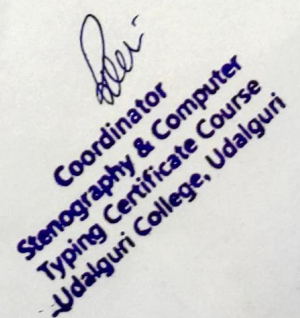 Coordinator
Stenography & Computer
Typing Certificate Course
Udalguri College, Udalguri